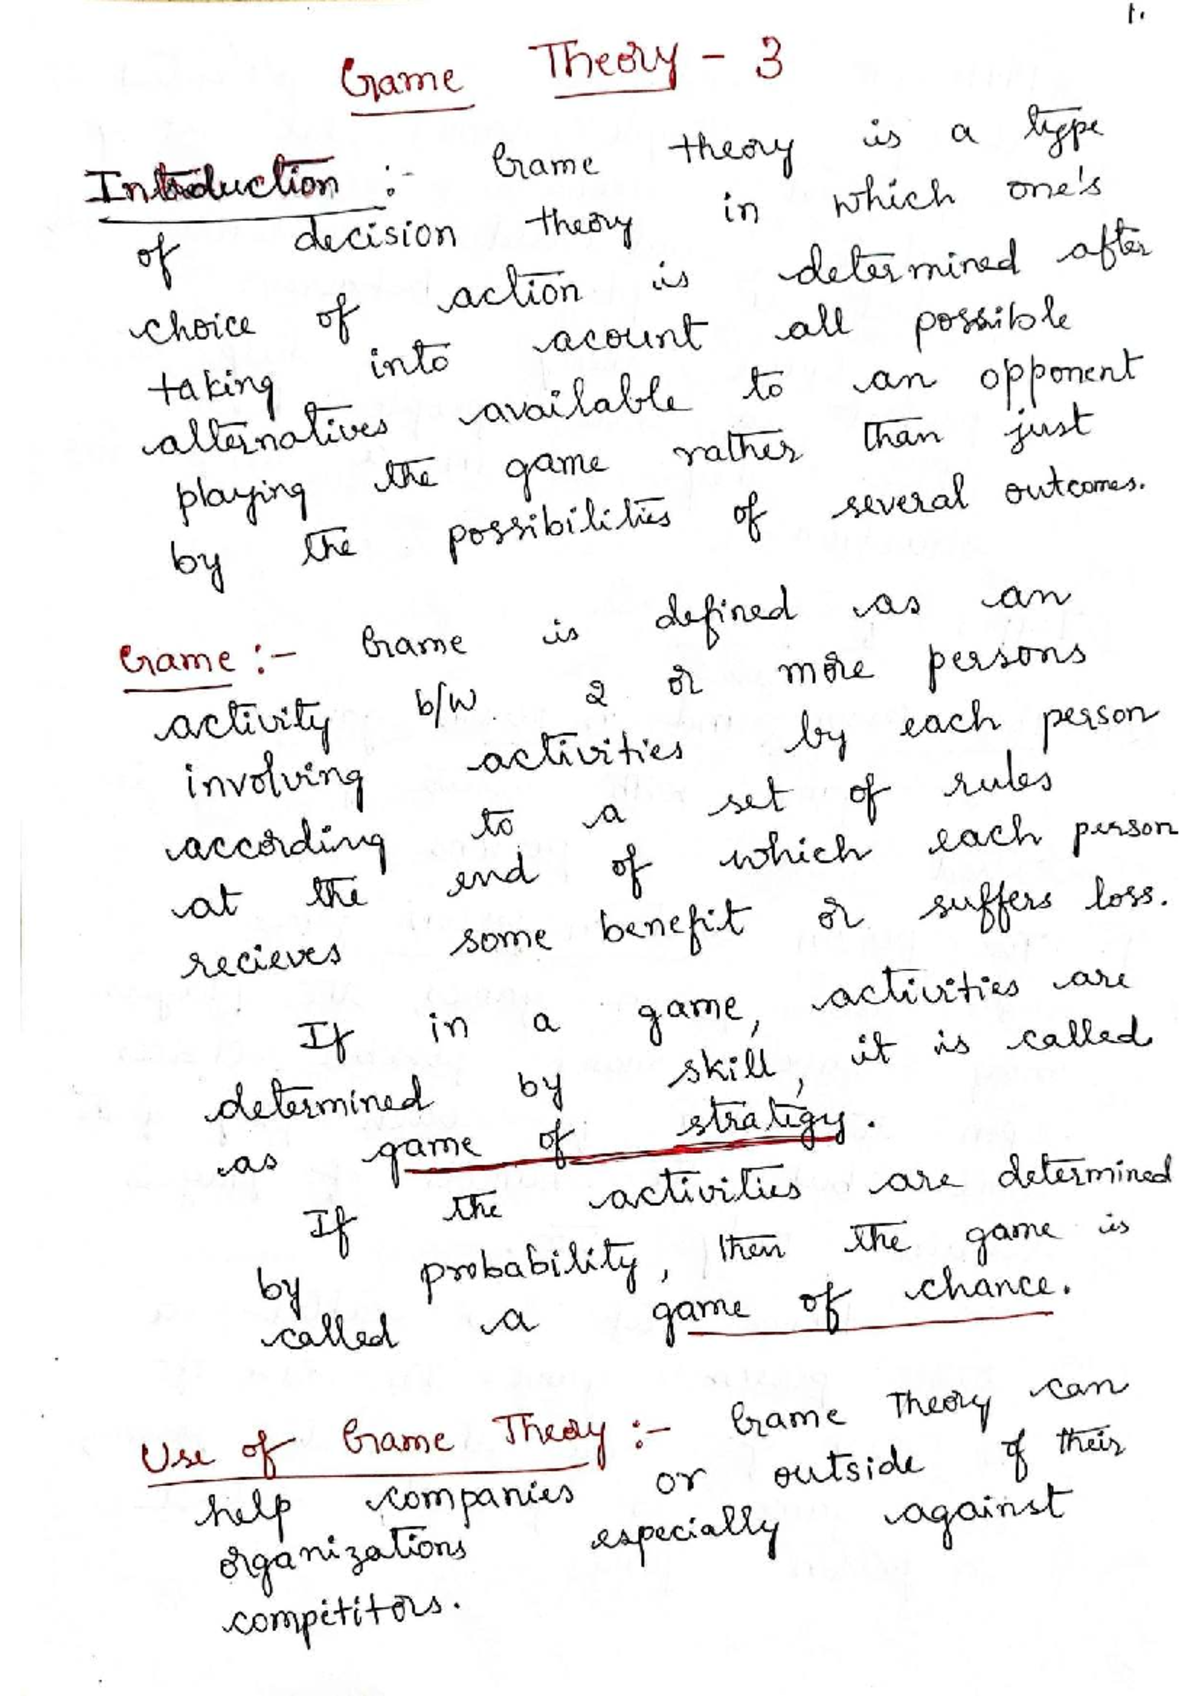 1.
Game Theory - 3
Introduction :- Game theory is a type
of decision theory in which one's
choice of action is determined after
taking into acount all possible
alternatives available to an opponent
playing the game rather than just
by the possibilities of several outcomes.
Game :- Game is defined as an
activity b/w 2 or more persons
involving activities by each person
according to a set of rules
at the end of which each person
recieves some benefit or suffers loss.
If in a game, activities are
determined by skill, it is called
as game of strategy.
If the activities are determined
by probability, then the game is
called a game of chance.
Use of Game Theory :- Game Theory can
help companies or outside of their
organizations especially against
competitors.